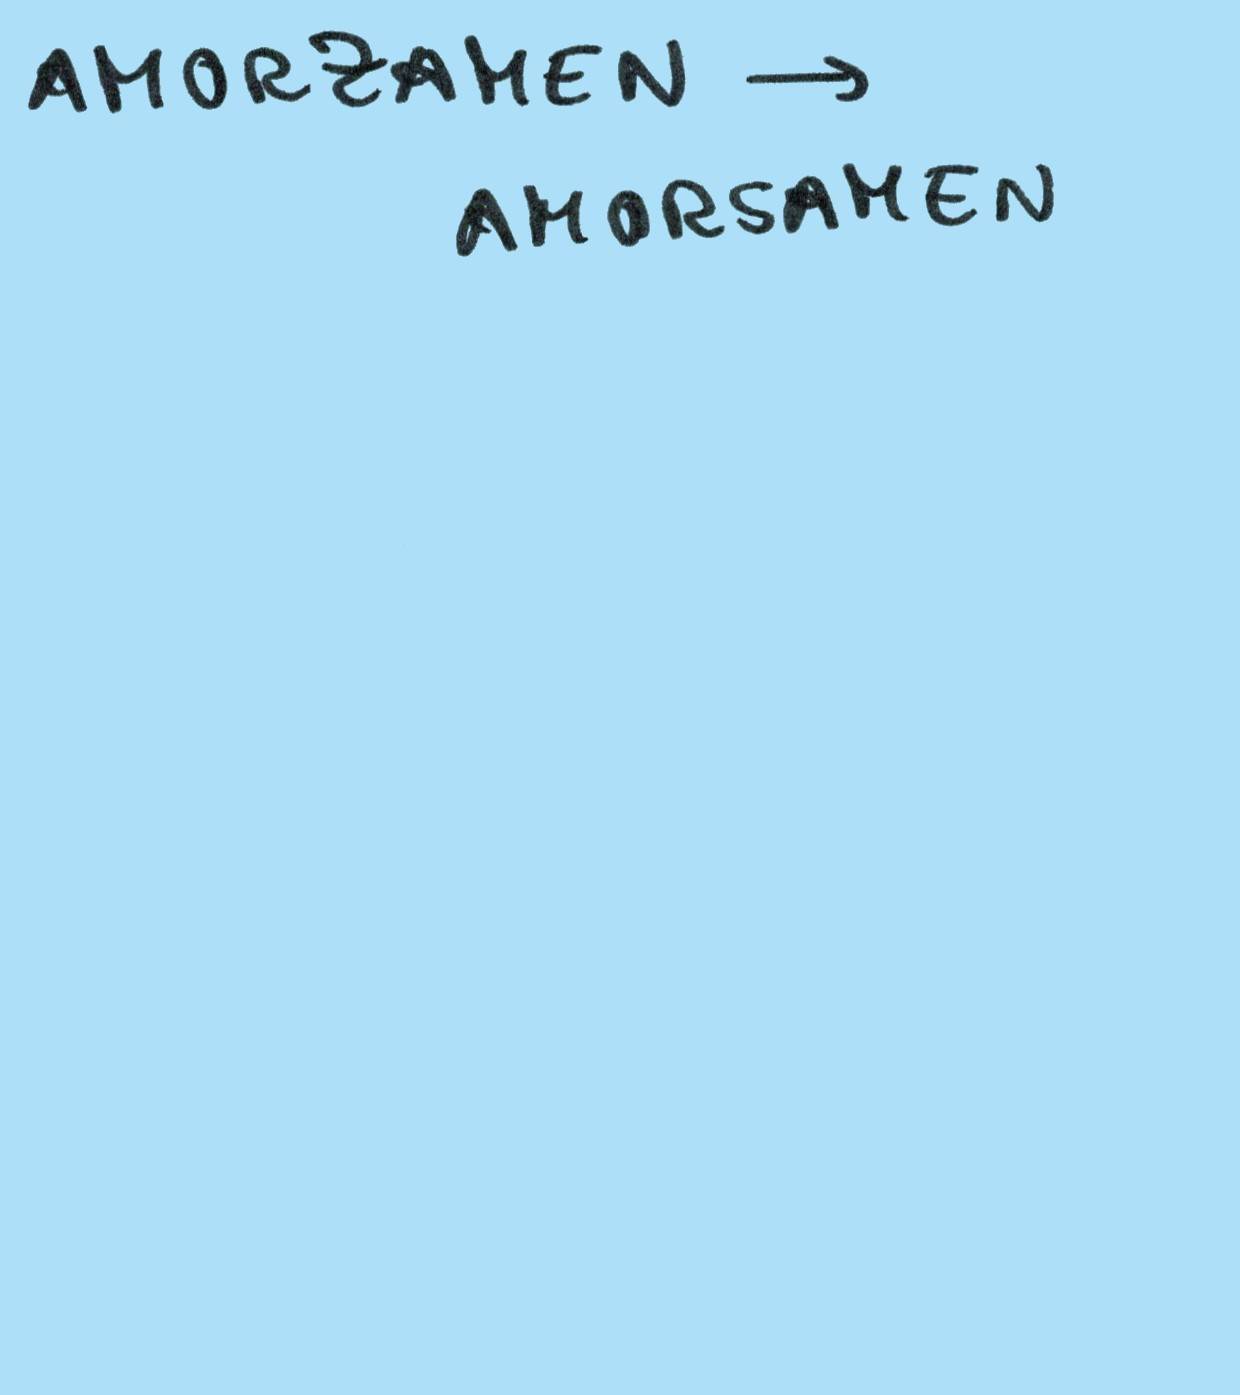 AMORZAMEN →
AMORSAMEN